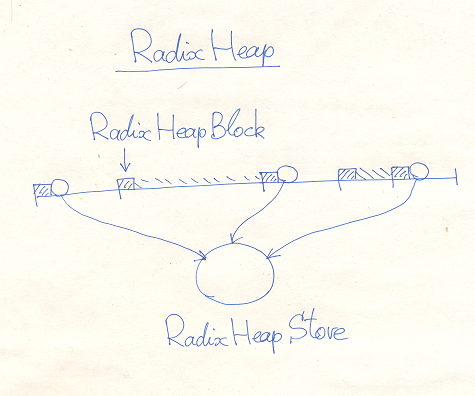 Radix Heap
RadixHeapBlock
RadixHeapStore